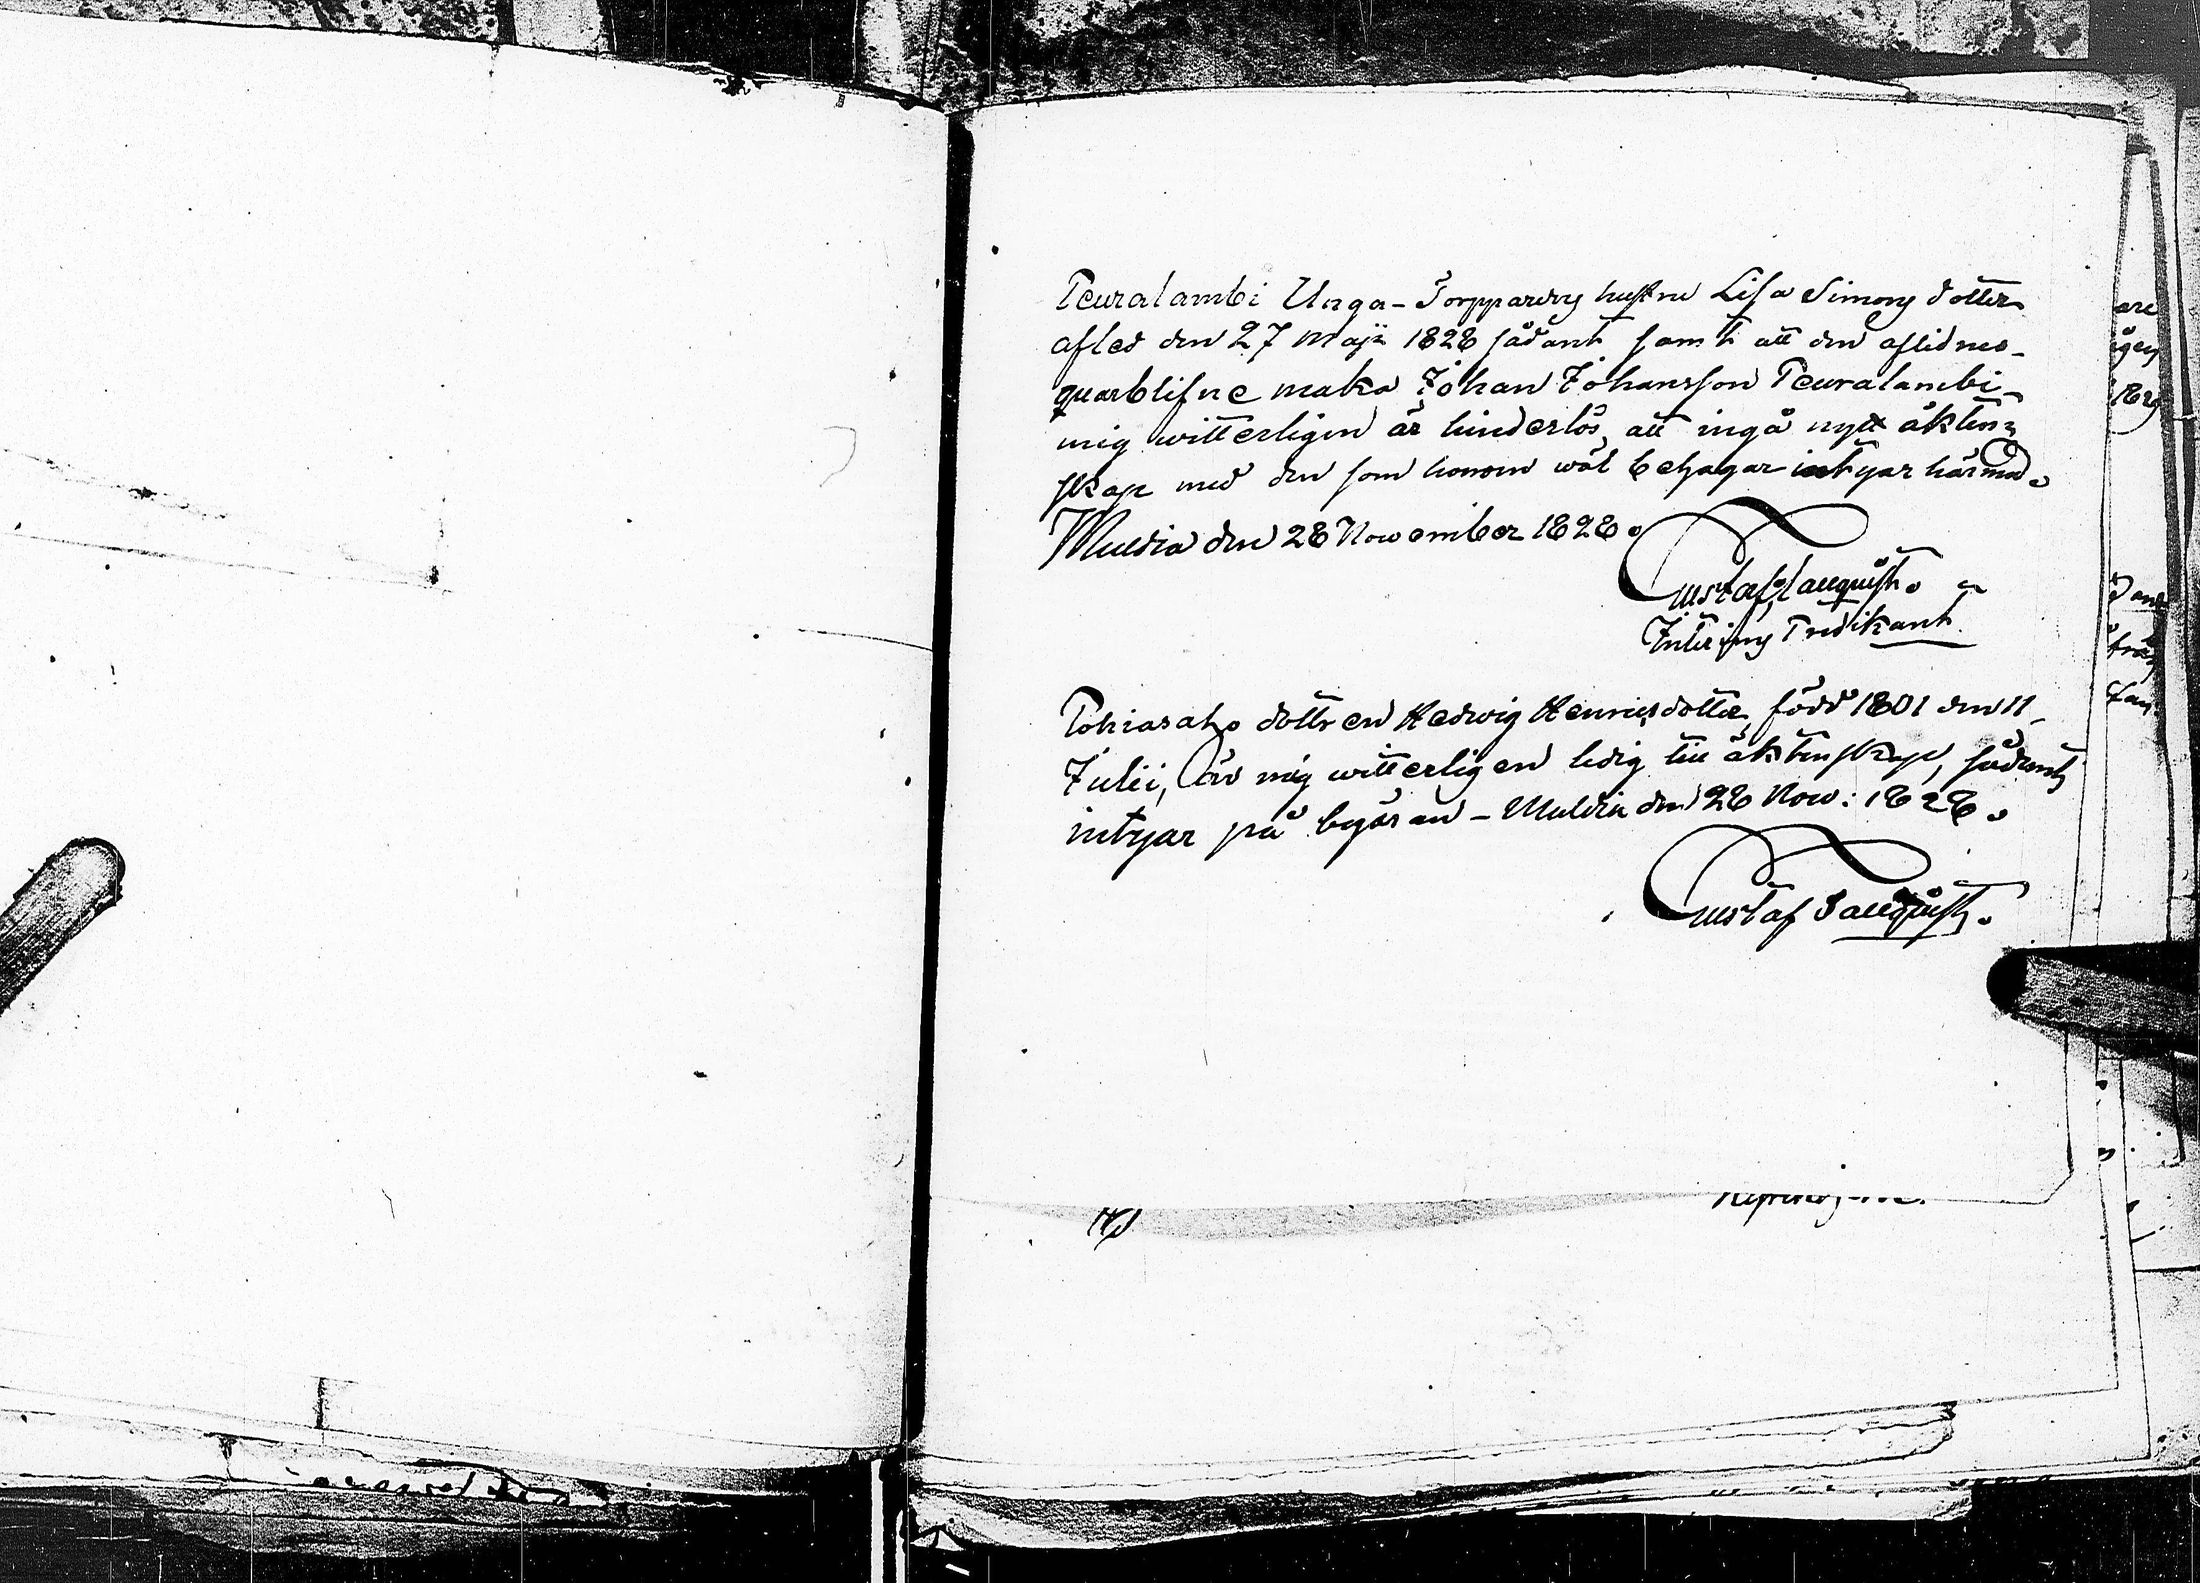 Peuralambi Unga-Torpparens hustru Lisa Simons dotter
afled den 27 Maji 1828 sådant samt att den aflidnes
quarblifne maka Johan Johansson Peuralambi
mig witterligen är hinderlös, att ingå nytt äkten=
skap med den som honom wäl behagar intygar härmed.
Muldia den 28 November 1828.
Gustaf
Predikant
dottren Hedwig Henricsdotter född 1801 den 11
Julii, är mig witterligen ledig till äktenskap, sådant
intygar på begäran - Muldia den 28 Nov: 1828.
Gustaf